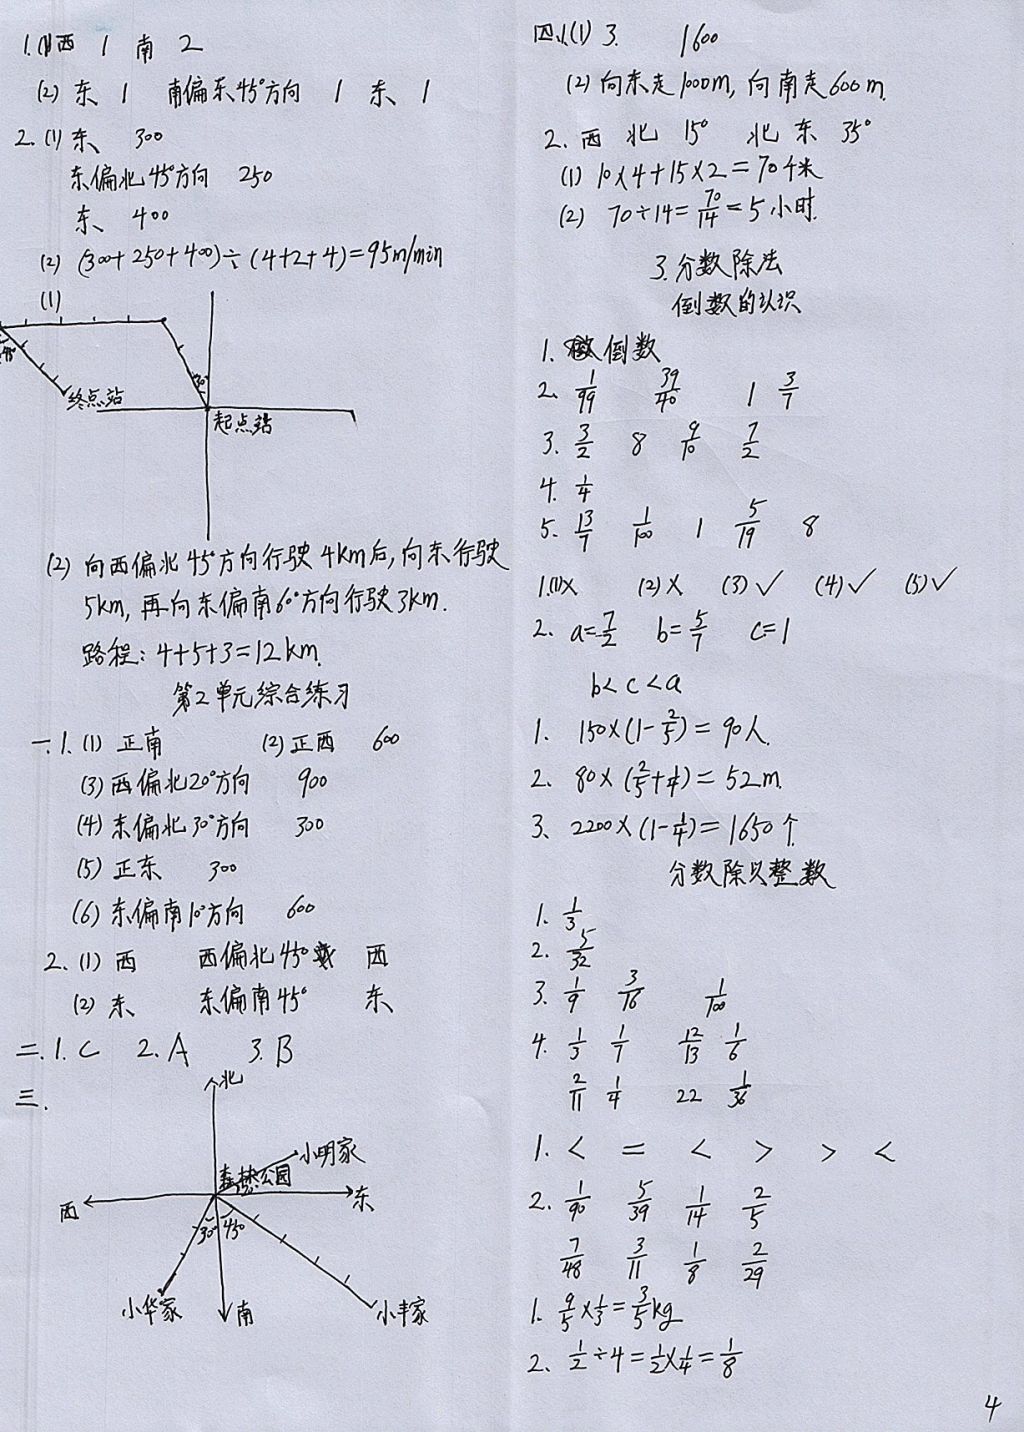 1.(1)西 1 南 2
(2) 东 1 南偏东45°方向 1 东 1
2.(1) 东 300
东偏北45°方向 250
东 400
(2) (300+250+400)÷(4+2+4)=95m/min
(1)
45°
30°
终点站
起点站
(2) 向西偏北45°方向行驶4km后,向东行驶
5km,再向东偏南60°方向行驶3km.
路程:4+5+3=12km.
第2单元综合练习
一.1.(1) 正南 (2)正西 600
(3)西偏北20°方向 900
(4)东偏北30°方向 300
(5)正东 300
(6)东偏南10°方向 600
2.(1) 西 西偏北45° 西
(2) 东 东偏南45° 东
二.1.C 2.A 3.B
三.
北
小明家
公园
西
东
30° 45°
小华家
南
小丰家
四.1.(1) 3. 1600
(2)向东走1000m,向南走600m.
2.西 北 15° 北 东 35°
(1) 10×4+15×2=70千米
(2) 70÷14=70/14=5小时.
3.分数除法
倒数的认识
1. 倒数
2. 1/99 39/40 1 3/7
3. 3/2 8 9/10 7/2
4. 1/4
5. 13/7 1/100 1 5/19 8
1.(1)× (2)× (3)✓ (4)✓ (5)✓
2. a=7/2 b=5/7 c=1
b<c<a
1. 150×(1-2/5)=90人.
2. 80×(2/5+1/4)=52m.
3. 2200×(1-1/4)=1650个.
分数除以整数
1. 1/3
2. 5/32
3. 1/9 3/16 1/100
4. 1/3 1/7 12/13 1/6
2/11 1/4 22 1/36
1. < = < > > <
2. 1/90 5/39 1/14 2/5
7/48 3/11 1/8 2/29
1. 9/5×1/3=3/5kg
2. 1/2÷4=1/2×1/4=1/8
4